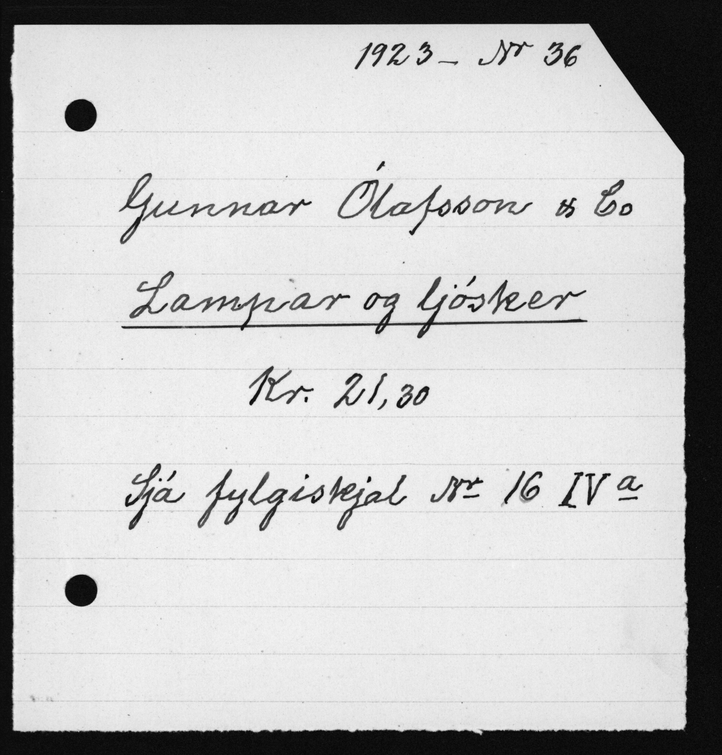 1923 – Nr 36
Gunnar Ólafsson & Co
Lampar og ljósker
Kr. 21,30
Sjá fylgiskjal Nr 16 IV a